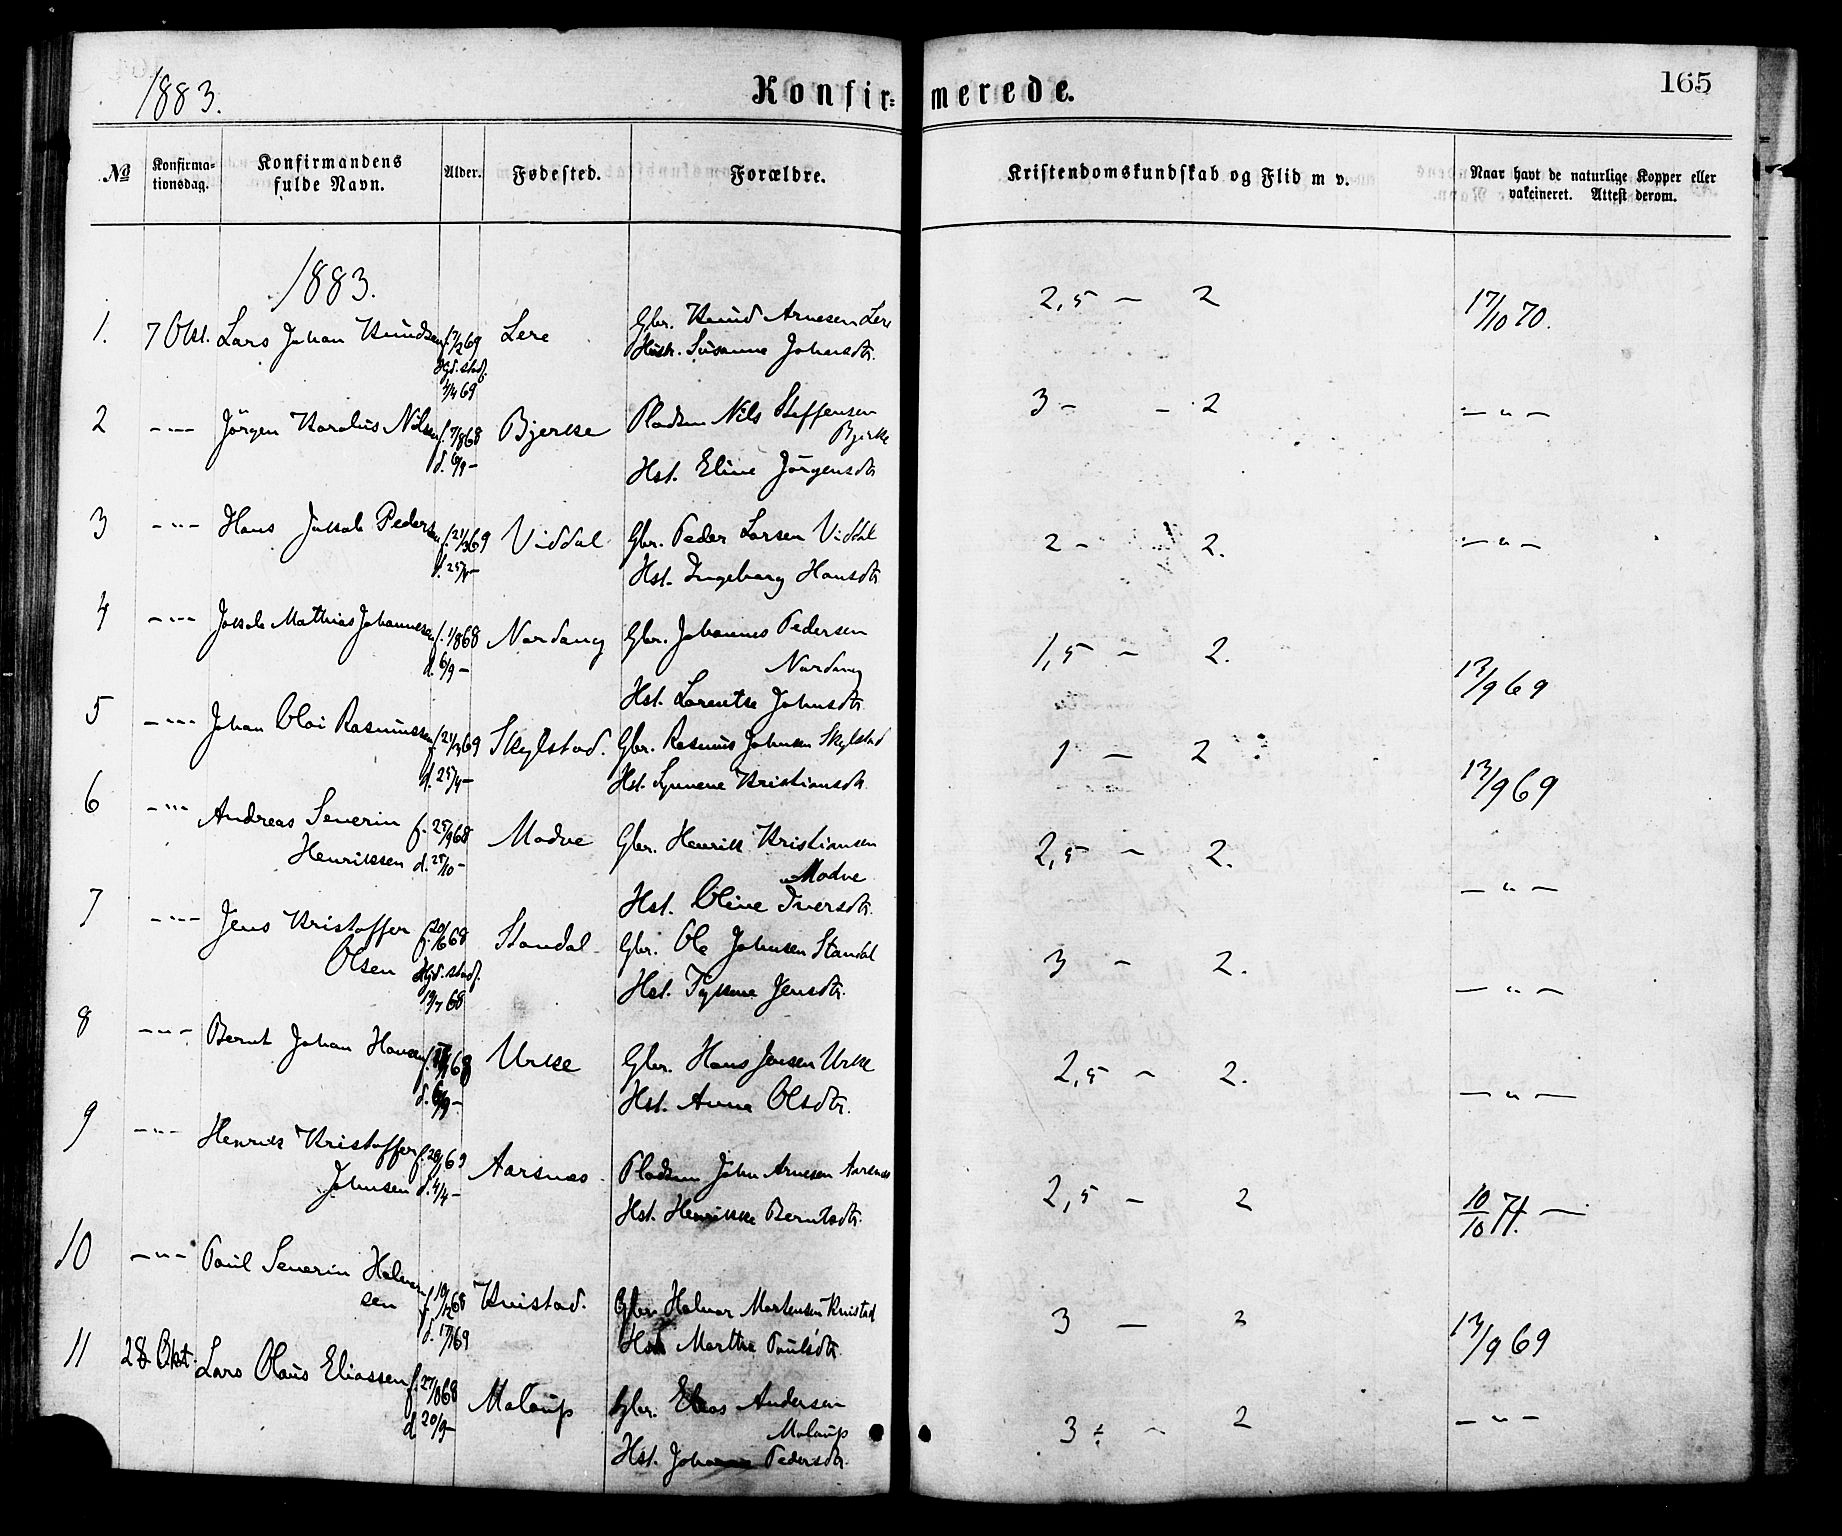 1883.
Konfirmerede.
165
No
Konfirma-
tionsdag.
Konfirmandens
fulde Navn.
Alder.
Fødested.
Forældre.
Kristendomskundskab og Flid m v.
Naar havt de naturlige Kopper eller
vakcineret. Attest derom.
1883.
1. 7 Okt. Lars Johan Knudsen f. 7/2 69 Lere Gbr. Knud Arnesen Lere 2,5 — 2 17/10 70.
Hjd. stad. 4/4 69 Hustr. Susanne Johansdtr.
2 — " — Jørgen Karolus Nilsen f. 7/8 68 Bjerke Pladsm Nils Steffensen 3 — — 2 — " —
Bjerke
d. 6/9 — Hst. Eline Jørgensdtr
3 — " — Hans Jakob Pedersen f. 21/3 69 Viddal Gbr. Peder Larsen Viddal 2 — 2. — " —
d. 25/4 — Hst. Ingeborg Hansdtr
4 — " — Jakob Mathias Johannesen f. 1/8 68 Nordang Gbr. Johannes Pedersen 1,5 — 2. 13/9 69
d. 6/9 — Nordang
Hst. Lorentse Johnsdtr
5 — " — Johan Olai Rasmussen f. 21/3 69 Skylstad. Gbr. Rasmus Johnsen Skylstad 1 — 2 13/9 69
d. 25/4 — Hst. Synneve Kristiansdtr
6 — " — Andreas Severin f. 25/9 68 Modve Gbr. Henrik Kristiansen 2,5 — 2. — " —
Henriksen d. 25/10 — Modve
Hst. Oline Iversdtr.
7 — " — Jens Kristoffer f. 20/6 68 Standal Gbr. Ole Johnsen Standal 3 — 2. — " —
Olsen Hjd. stad. 19/7 68 Hst. Jensdtr.
8 — " — Bernt Johan Hansen 68 Urke Gbr. Hans Jensen Urke 2,5 — 2. — " —
d. 6/9 — Hst. Anne Olsdtr.
9 — " — Henrik Kristoffer Aarsnes Pladsm John Arnesen Aarsnes 2,5 — 2 10/10 71. —
Johnsen d. 4/4 — Hst. Henrikke Berntsdtr.
10 — " — Paul Severin Halvor- f. 19/12 68 Knistad. Gbr. Halvor Mortensen Knistad 3 — 2 13/9 69
sen d. 17/1 69 Hst Marthe Paulsdtr.
11 28 Okt. Lars Olaus Eliassen f. 27/8 68 Molaup Gbr. Elias Andersen 3 — 2 — " —
d 20/9 — Molaup
Hst. Johanne Pedersdtr.